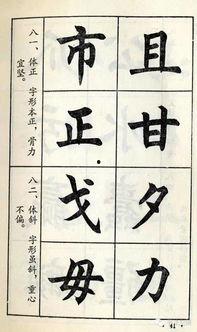 且甘夕力
市正戈毋
八一、体正 字形本正，骨力
宜坚。
八二、体斜 字形虽斜，重心
不偏。